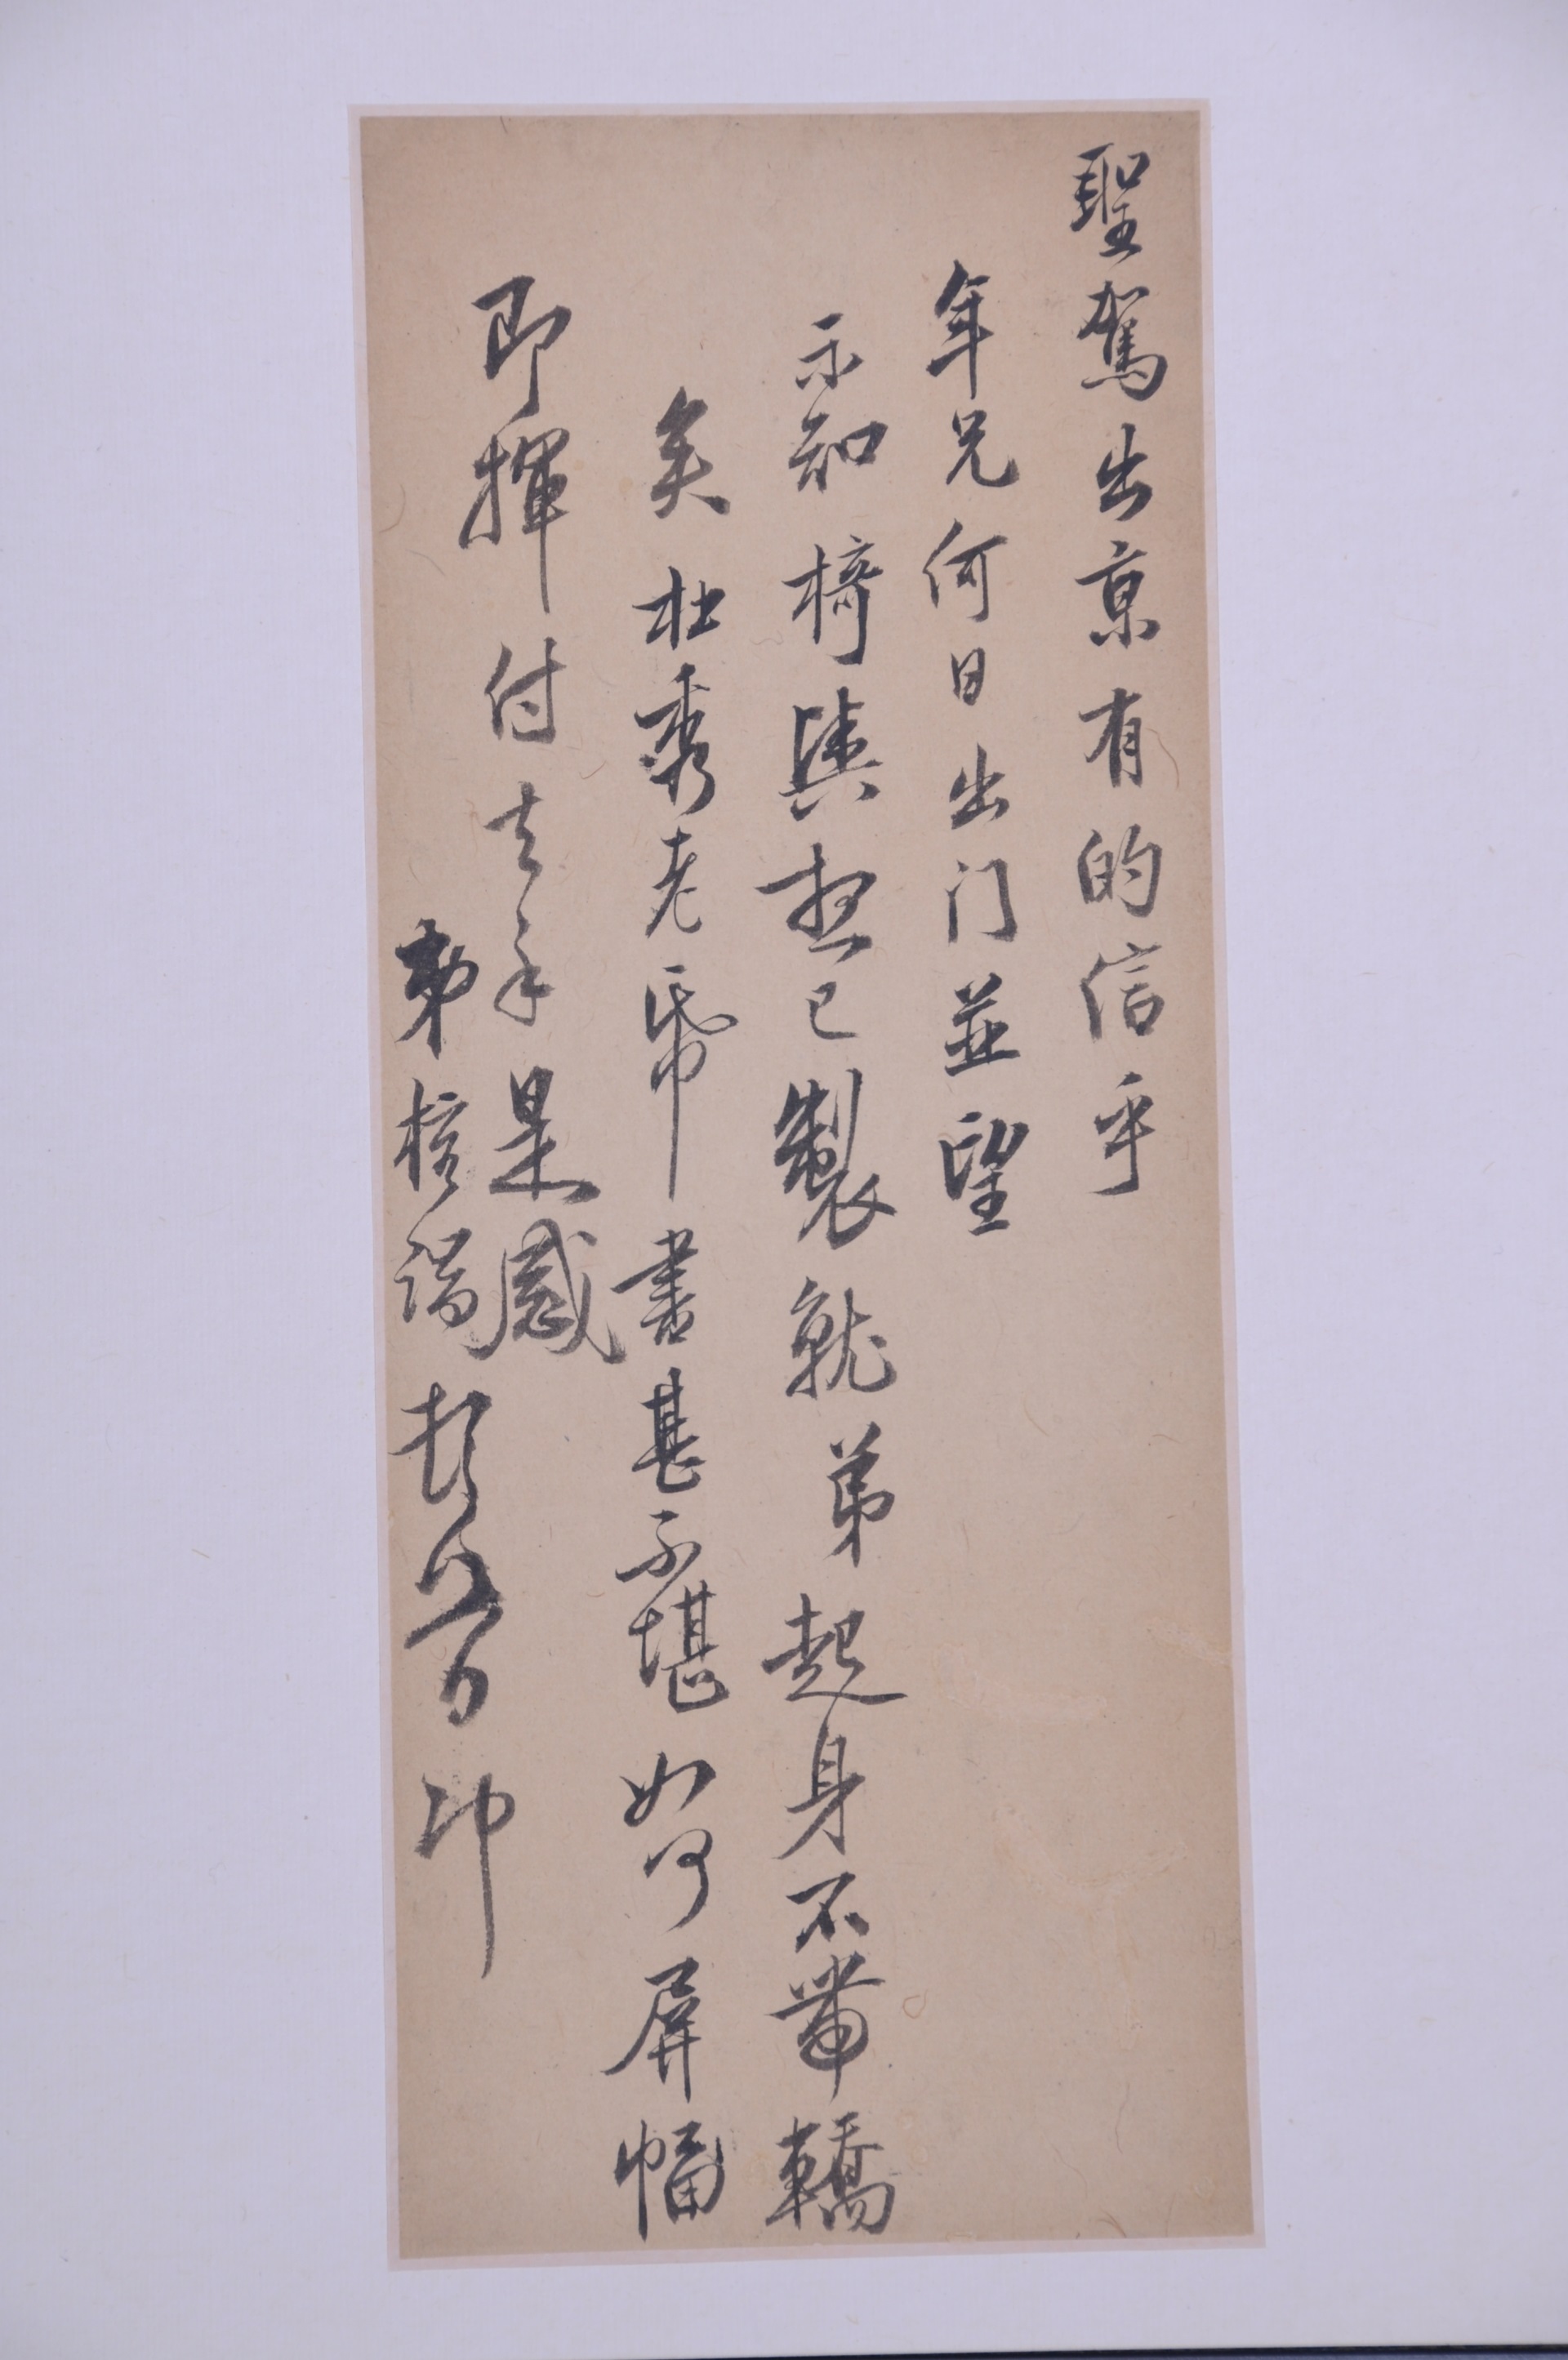 聖駕出京有的信乎
年兄何日出门並望
示知椅輿想已製就弟起身不帶轎
矣杜秀老帋書甚不堪如何屏幅
即揮付去手是感
弟頓首